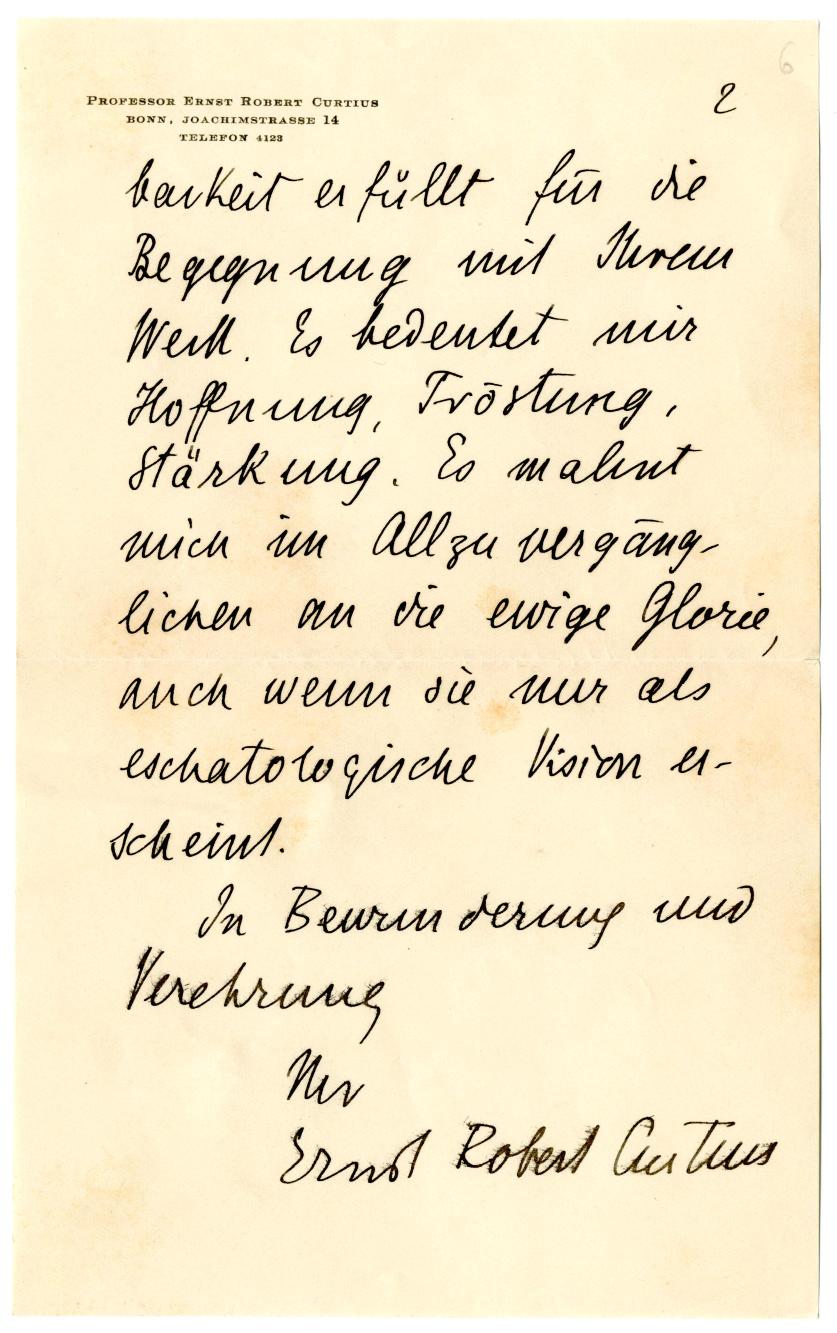 6
PROFESSOR ERNST ROBERT CURTIUS
BONN, JOACHIMSTRASSE 14
TELEFON 4123
2
barkeit erfüllt für die
Begegnung mit Ihrem
Werk. Es bedeutet mir
Hoffnung, Tröstung,
Stärkung. Es mahnt
mich im Allzuvergäng-
lichen an die ewige Glorie,
auch wenn sie nur als
eschatologische Vision er-
scheint.
In Bewunderung und
Verehrung
Ihr
Ernst Robert Curtius